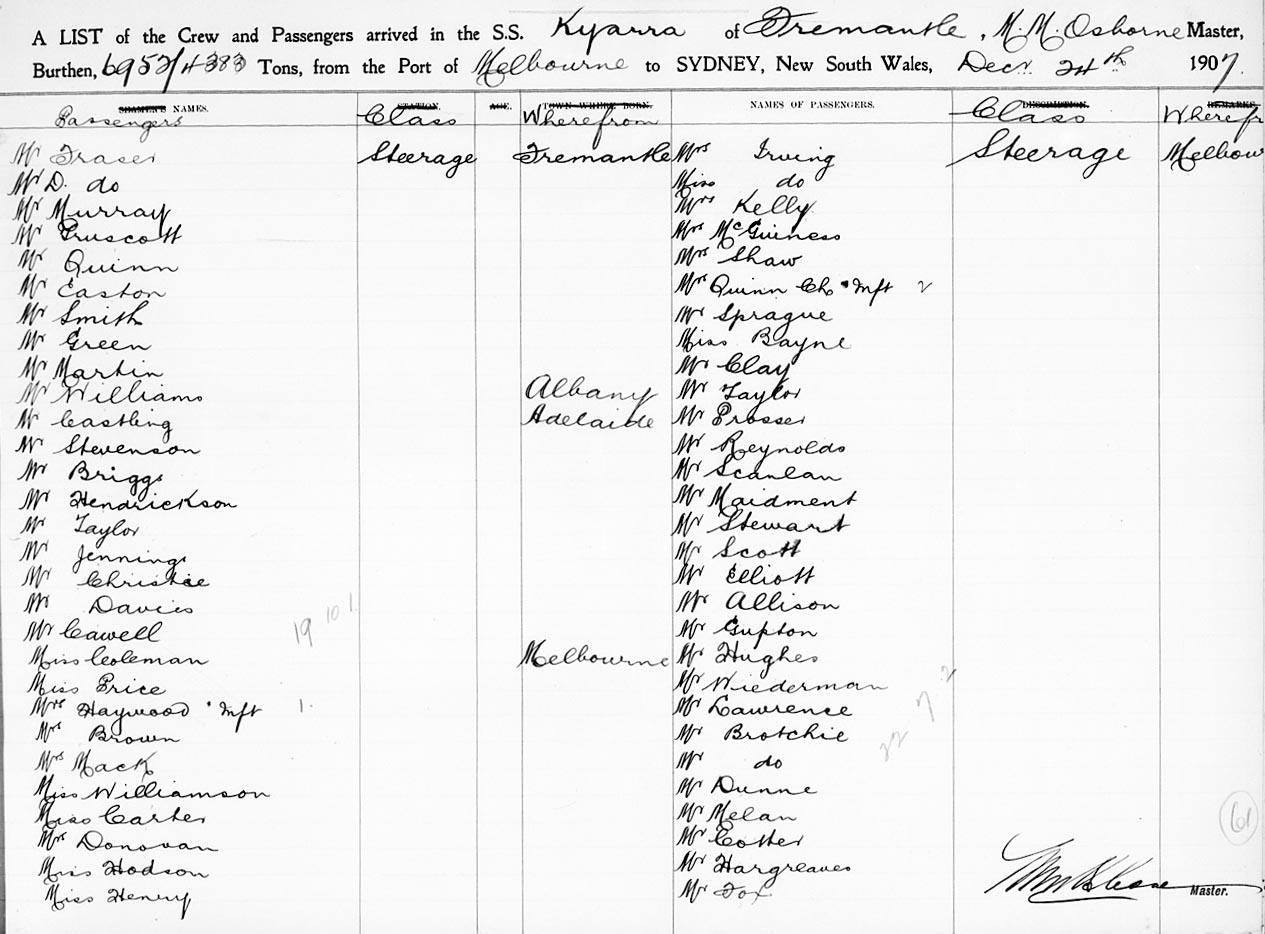 A LIST of the Crew and Passengers arrived in the S.S. Kyarra of Fremantle, M. M. Osborne Master,
Burthen, 6952/4383 Tons, from the Port of Melbourne to SYDNEY, New South Wales, Decr. 24th 1907.
SEAMEN'S NAMES. STATION. AGE. TOWN WHERE BORN. NAMES OF PASSENGERS. DESCRIPTION. REMARKS.
Passengers Class Wherefrom Class Wherefr
Mr Fraser Steerage Fremantle Mrs Irving Steerage Melbour
Mr D. do Miss do
Mr Murray Mrs Kelly
Mr Truscott Mrs McGuiness
Mr Quinn Mrs Shaw
Mr Easton Mrs Quinn Ch & Inft 2
Mr Smith Mr Sprague
Mr Green Miss Bayne
Mr Martin Mr Clay
Mr Williams Albany Mr Taylor
Mr Castling Adelaide Mr Prosser
Mr Stevenson Mr Reynolds
Mr Briggs Mr Scanlan
Mr Hendrickson Mr Maidment
Mr Taylor Mr Stewart
Mr Jennings Mr Scott
Mr Christie Mr Elliott
Mr Davies Mr Allison
Mr Cawell 19 10 1. Mr Gupton
Miss Coleman Melbourne Mr Hughes
Miss Price Mr Wiederman 2
Mrs Haywood & Inft 1. Mr Lawrence 7
Mrs Brown Mr Brotchie 22
Mrs Mack Mr do
Miss Williamson Mr Dunne
Miss Carter Mr Melan 61
Mrs Donovan Mr Cotter
Miss Hodson Mr Hargreaves
Miss Henry Mr Fox Master.